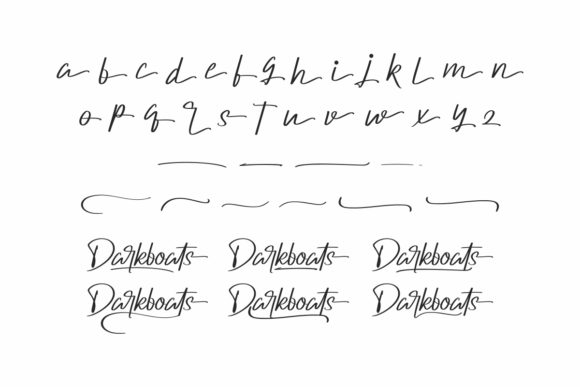 a b c d e b g h i j k l m n
o p q r s t u v w x y z
Darkboats Darkboats Darkboats
Darkboats Darkboats Darkboats